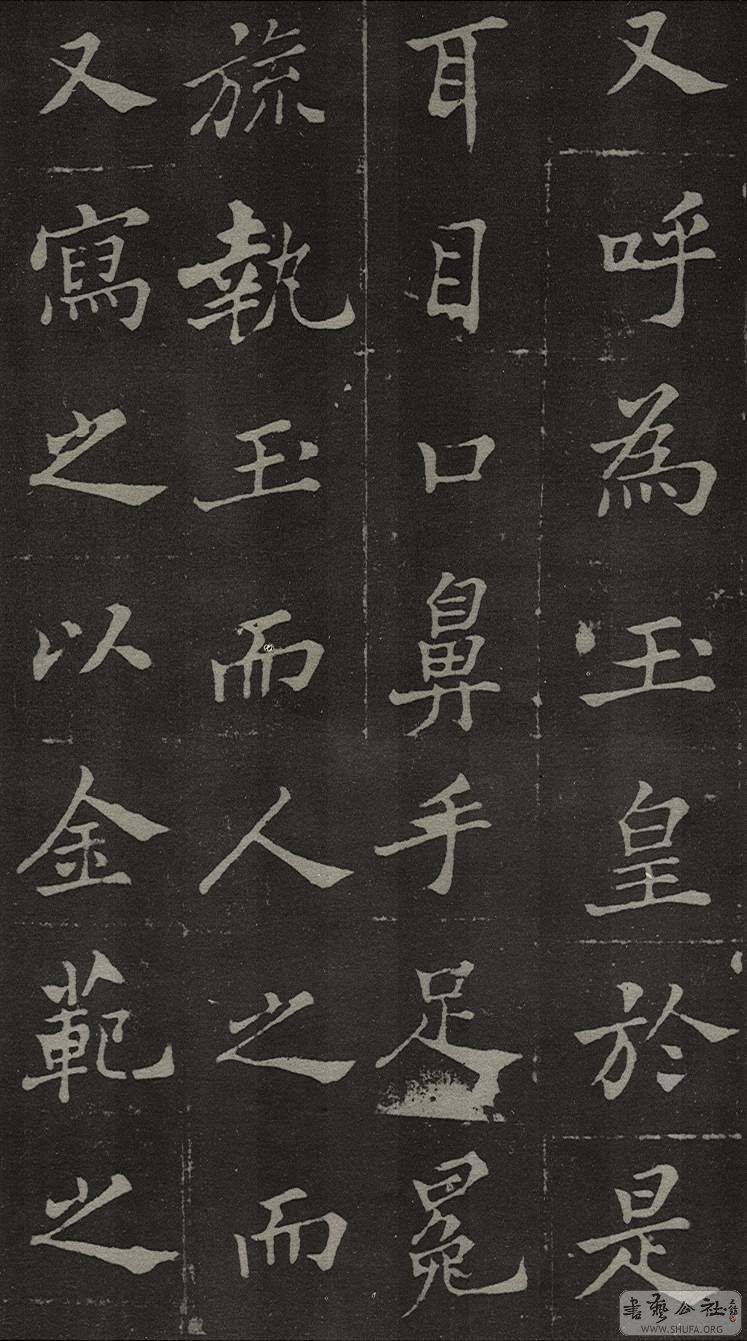 又呼為玉皇於是
耳目口鼻手足冕
旒執玉而人之而
又寫之以金範之
書藝公社
WWW.SHUFA.ORG